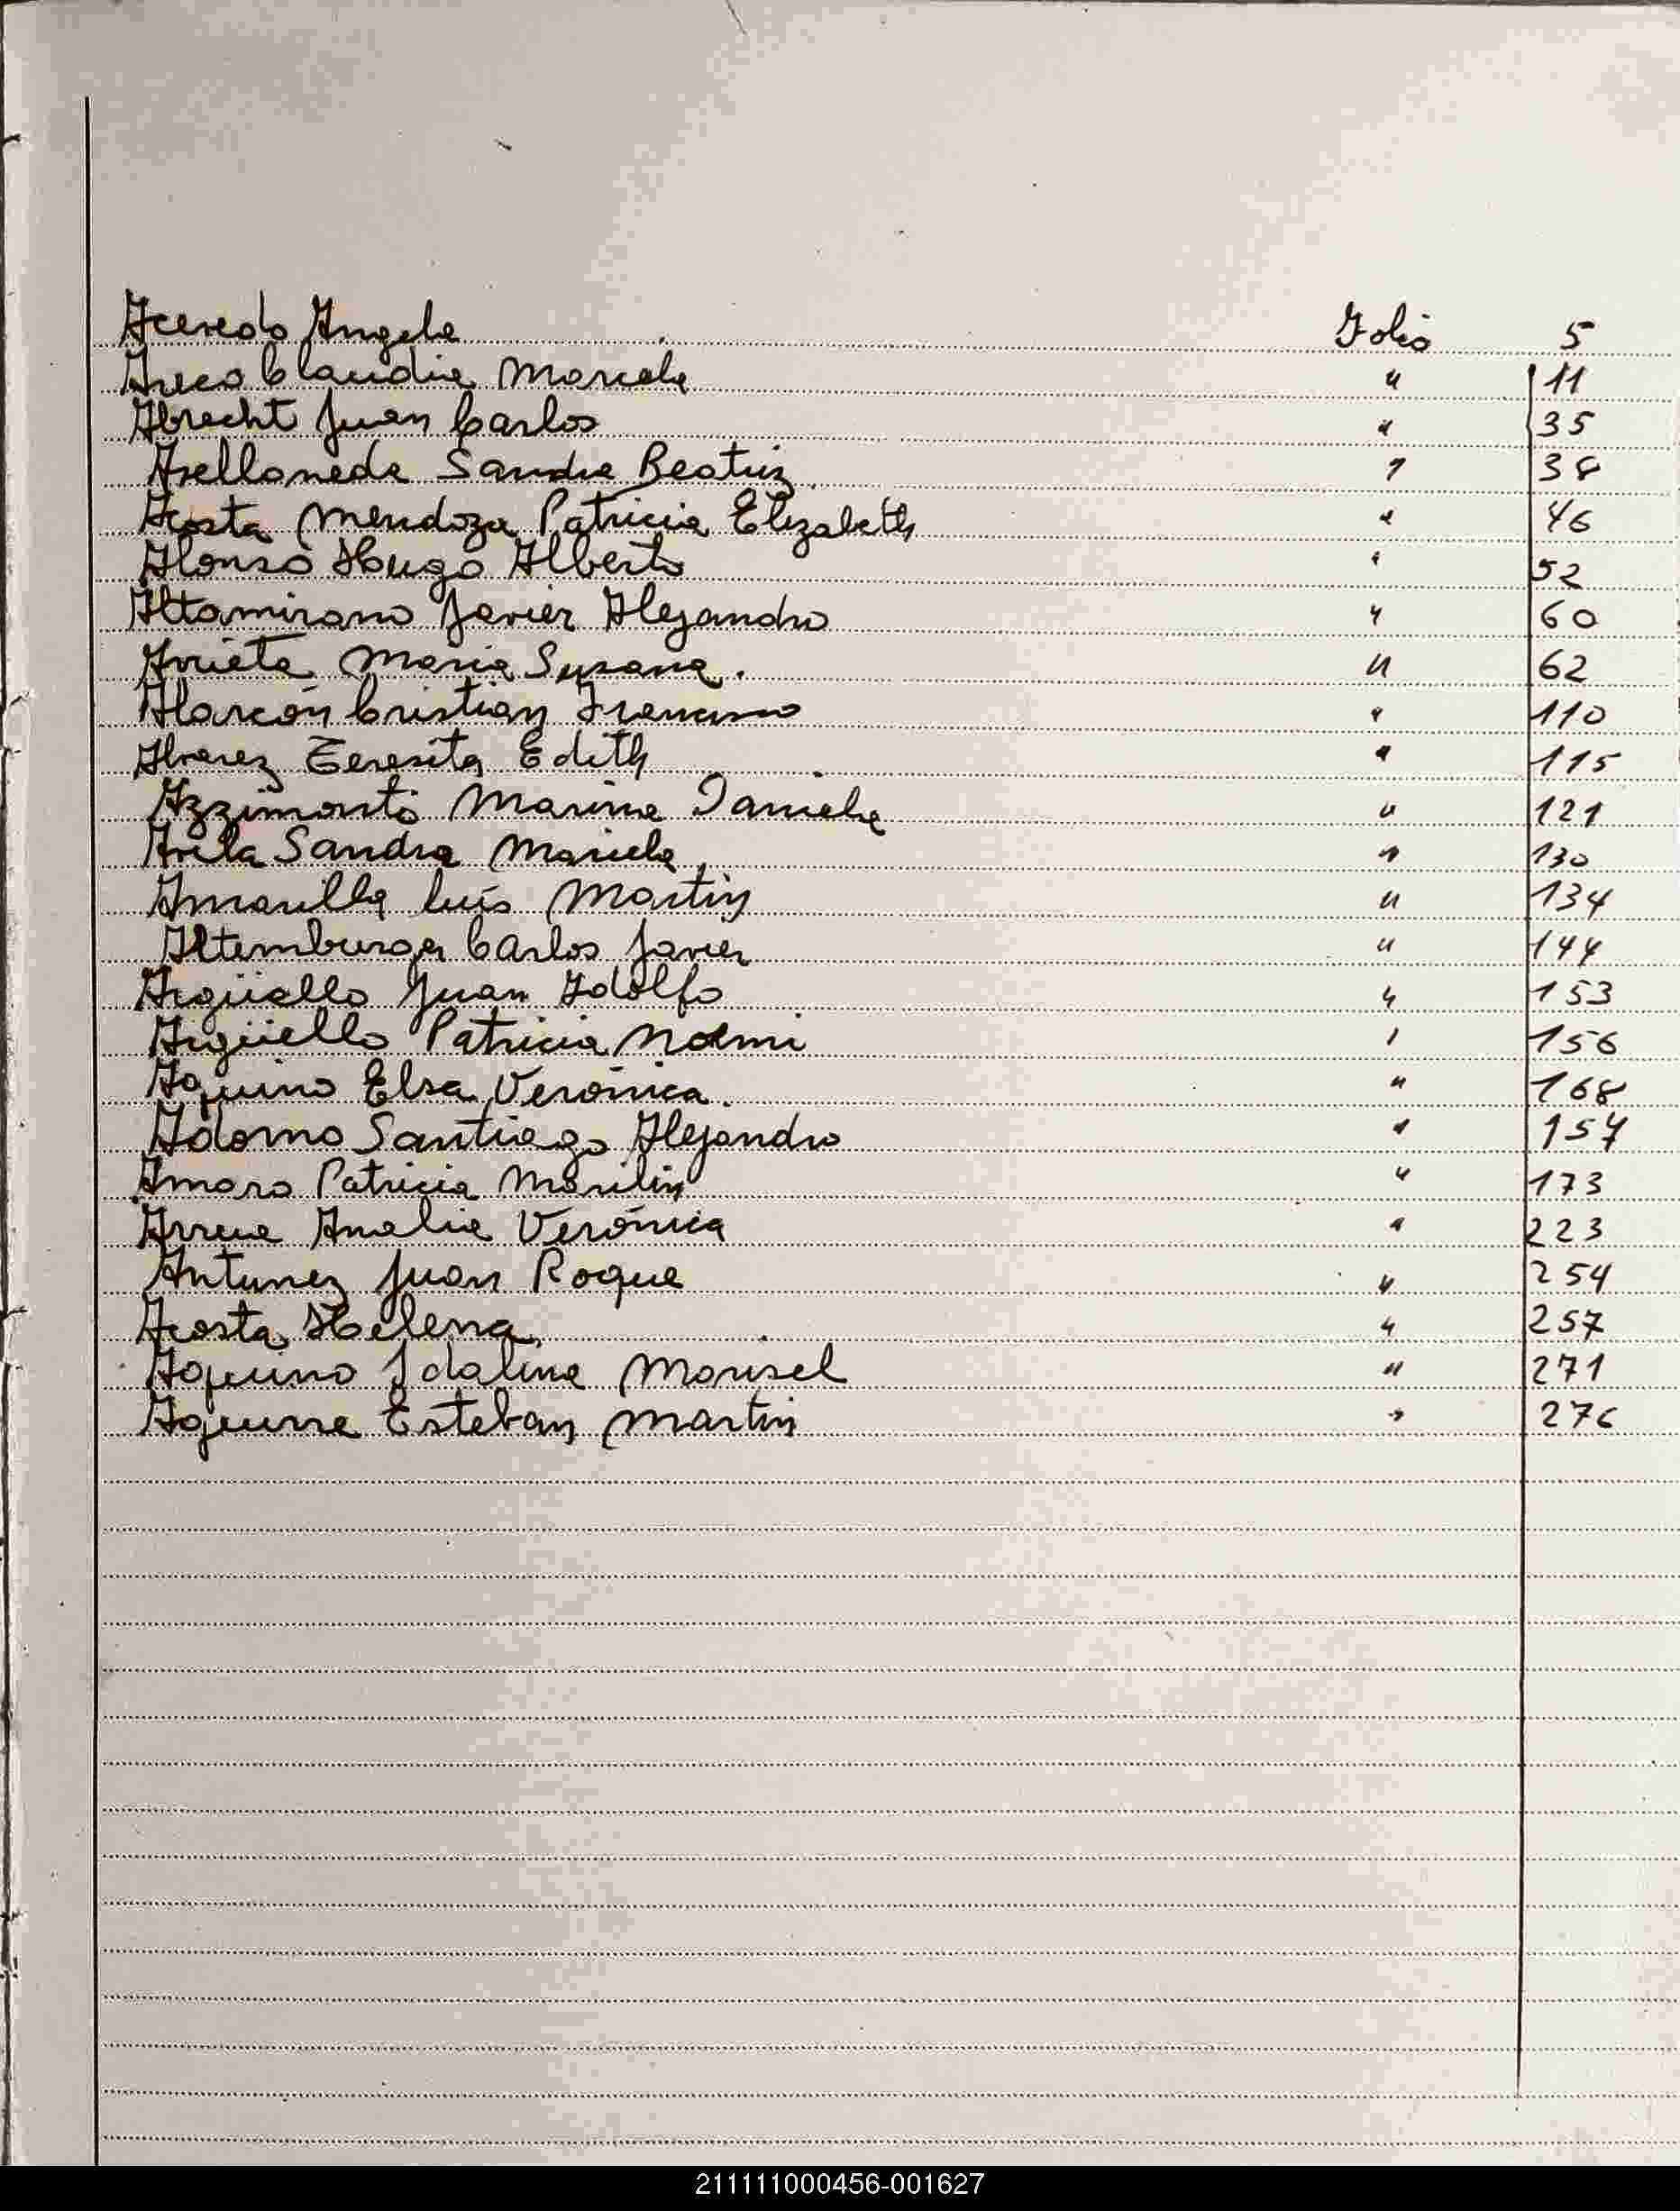 Acevedo Angela Folio 5
Areco Claudia Marcela " 11
Albrecht Juan Carlos " 35
Avellaneda Sandra Beatriz " 38
Acosta Mendoza Patricia Elizabeth " 46
Alonso Hugo Alberto " 52
Altamirano Javier Alejandro " 60
Arrieta Maria Susana. " 62
Alarcón Cristian Francisco " 110
Alvarez Teresita Edith " 115
Azzimonti Marina Daniela " 121
Avila Sandra Mariela " 130
Amarilla Luís Martin " 134
Altemburger Carlos Javier " 144
Argüello Juan Adolfo " 153
Argüello Patricia Noemi " 156
Aquino Elsa Verónica. " 168
Adorno Santiago Alejandro " 157
Amaro Patricia Marilin " 173
Arrua Analia Verónica " 223
Antunez Juan Roque " 254
Acosta Helena " 257
Aquino Idalina Marisel " 271
Aguirre Esteban Martin " 276
211111000456-001627